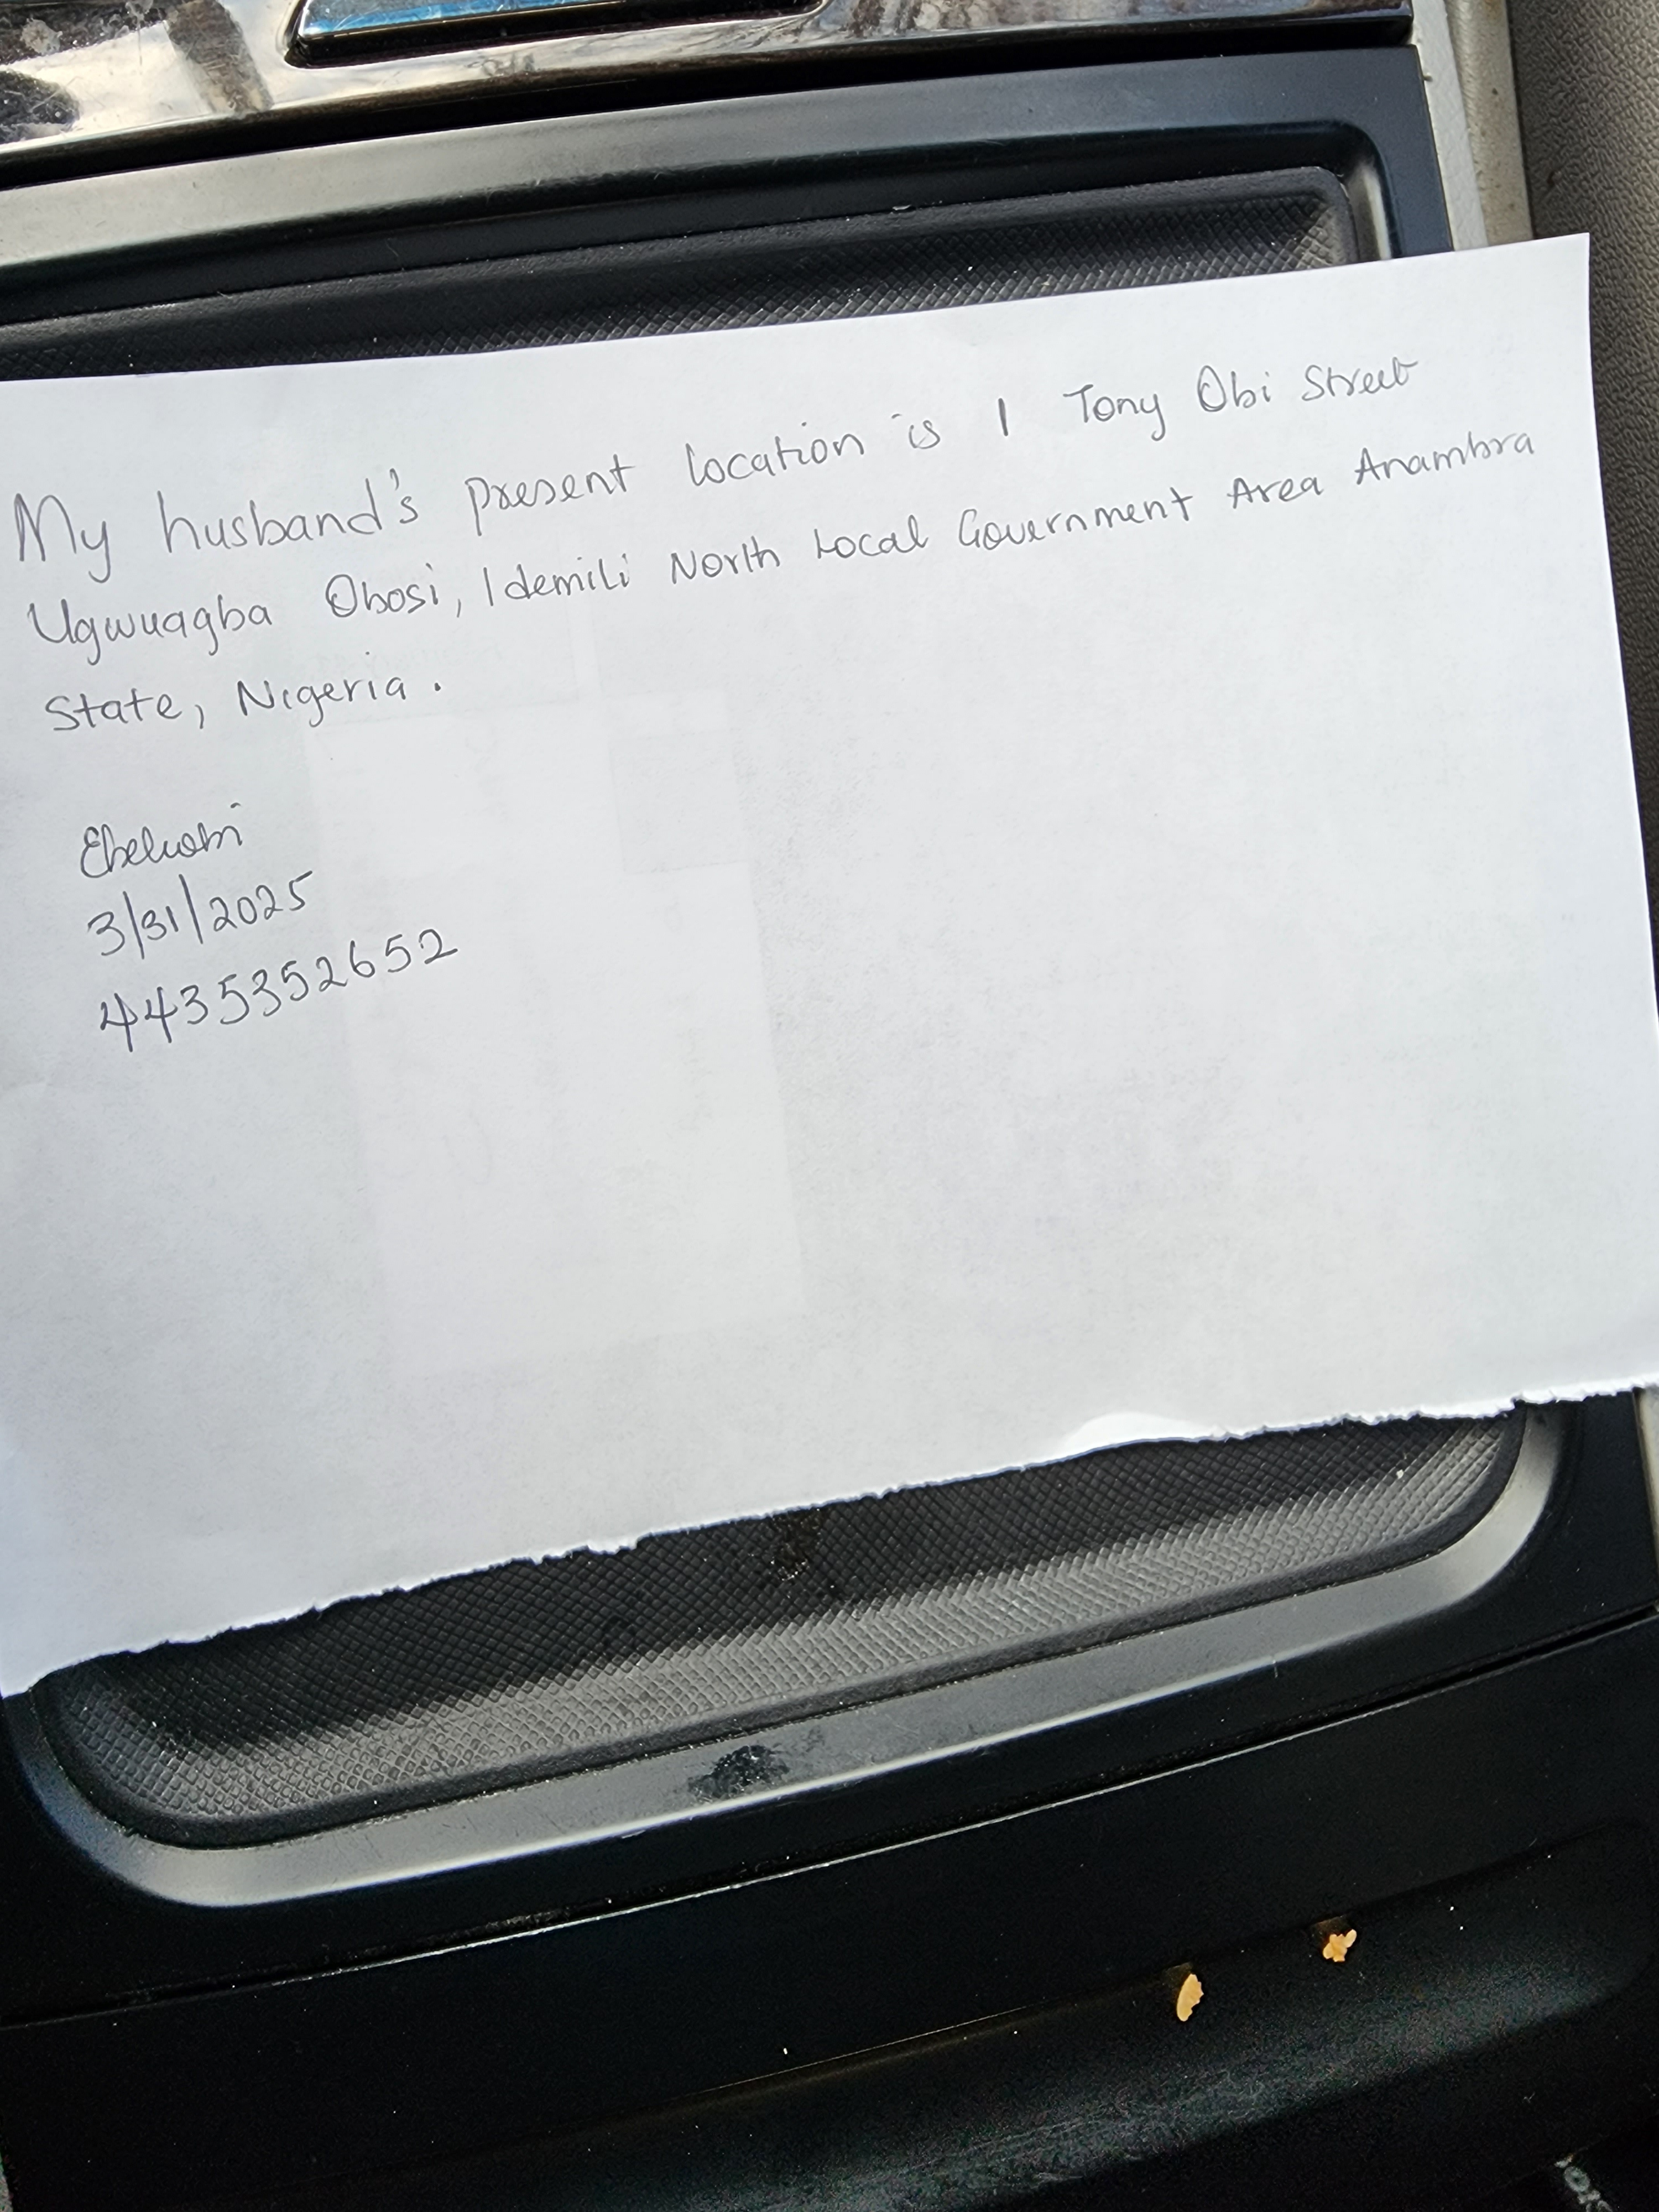 My husband's present location is 1 Tony Obi Street
Ugwuagba Obosi, Idemili North Local Government Area Anambra
State, Nigeria.
3/31/2025
4435352652